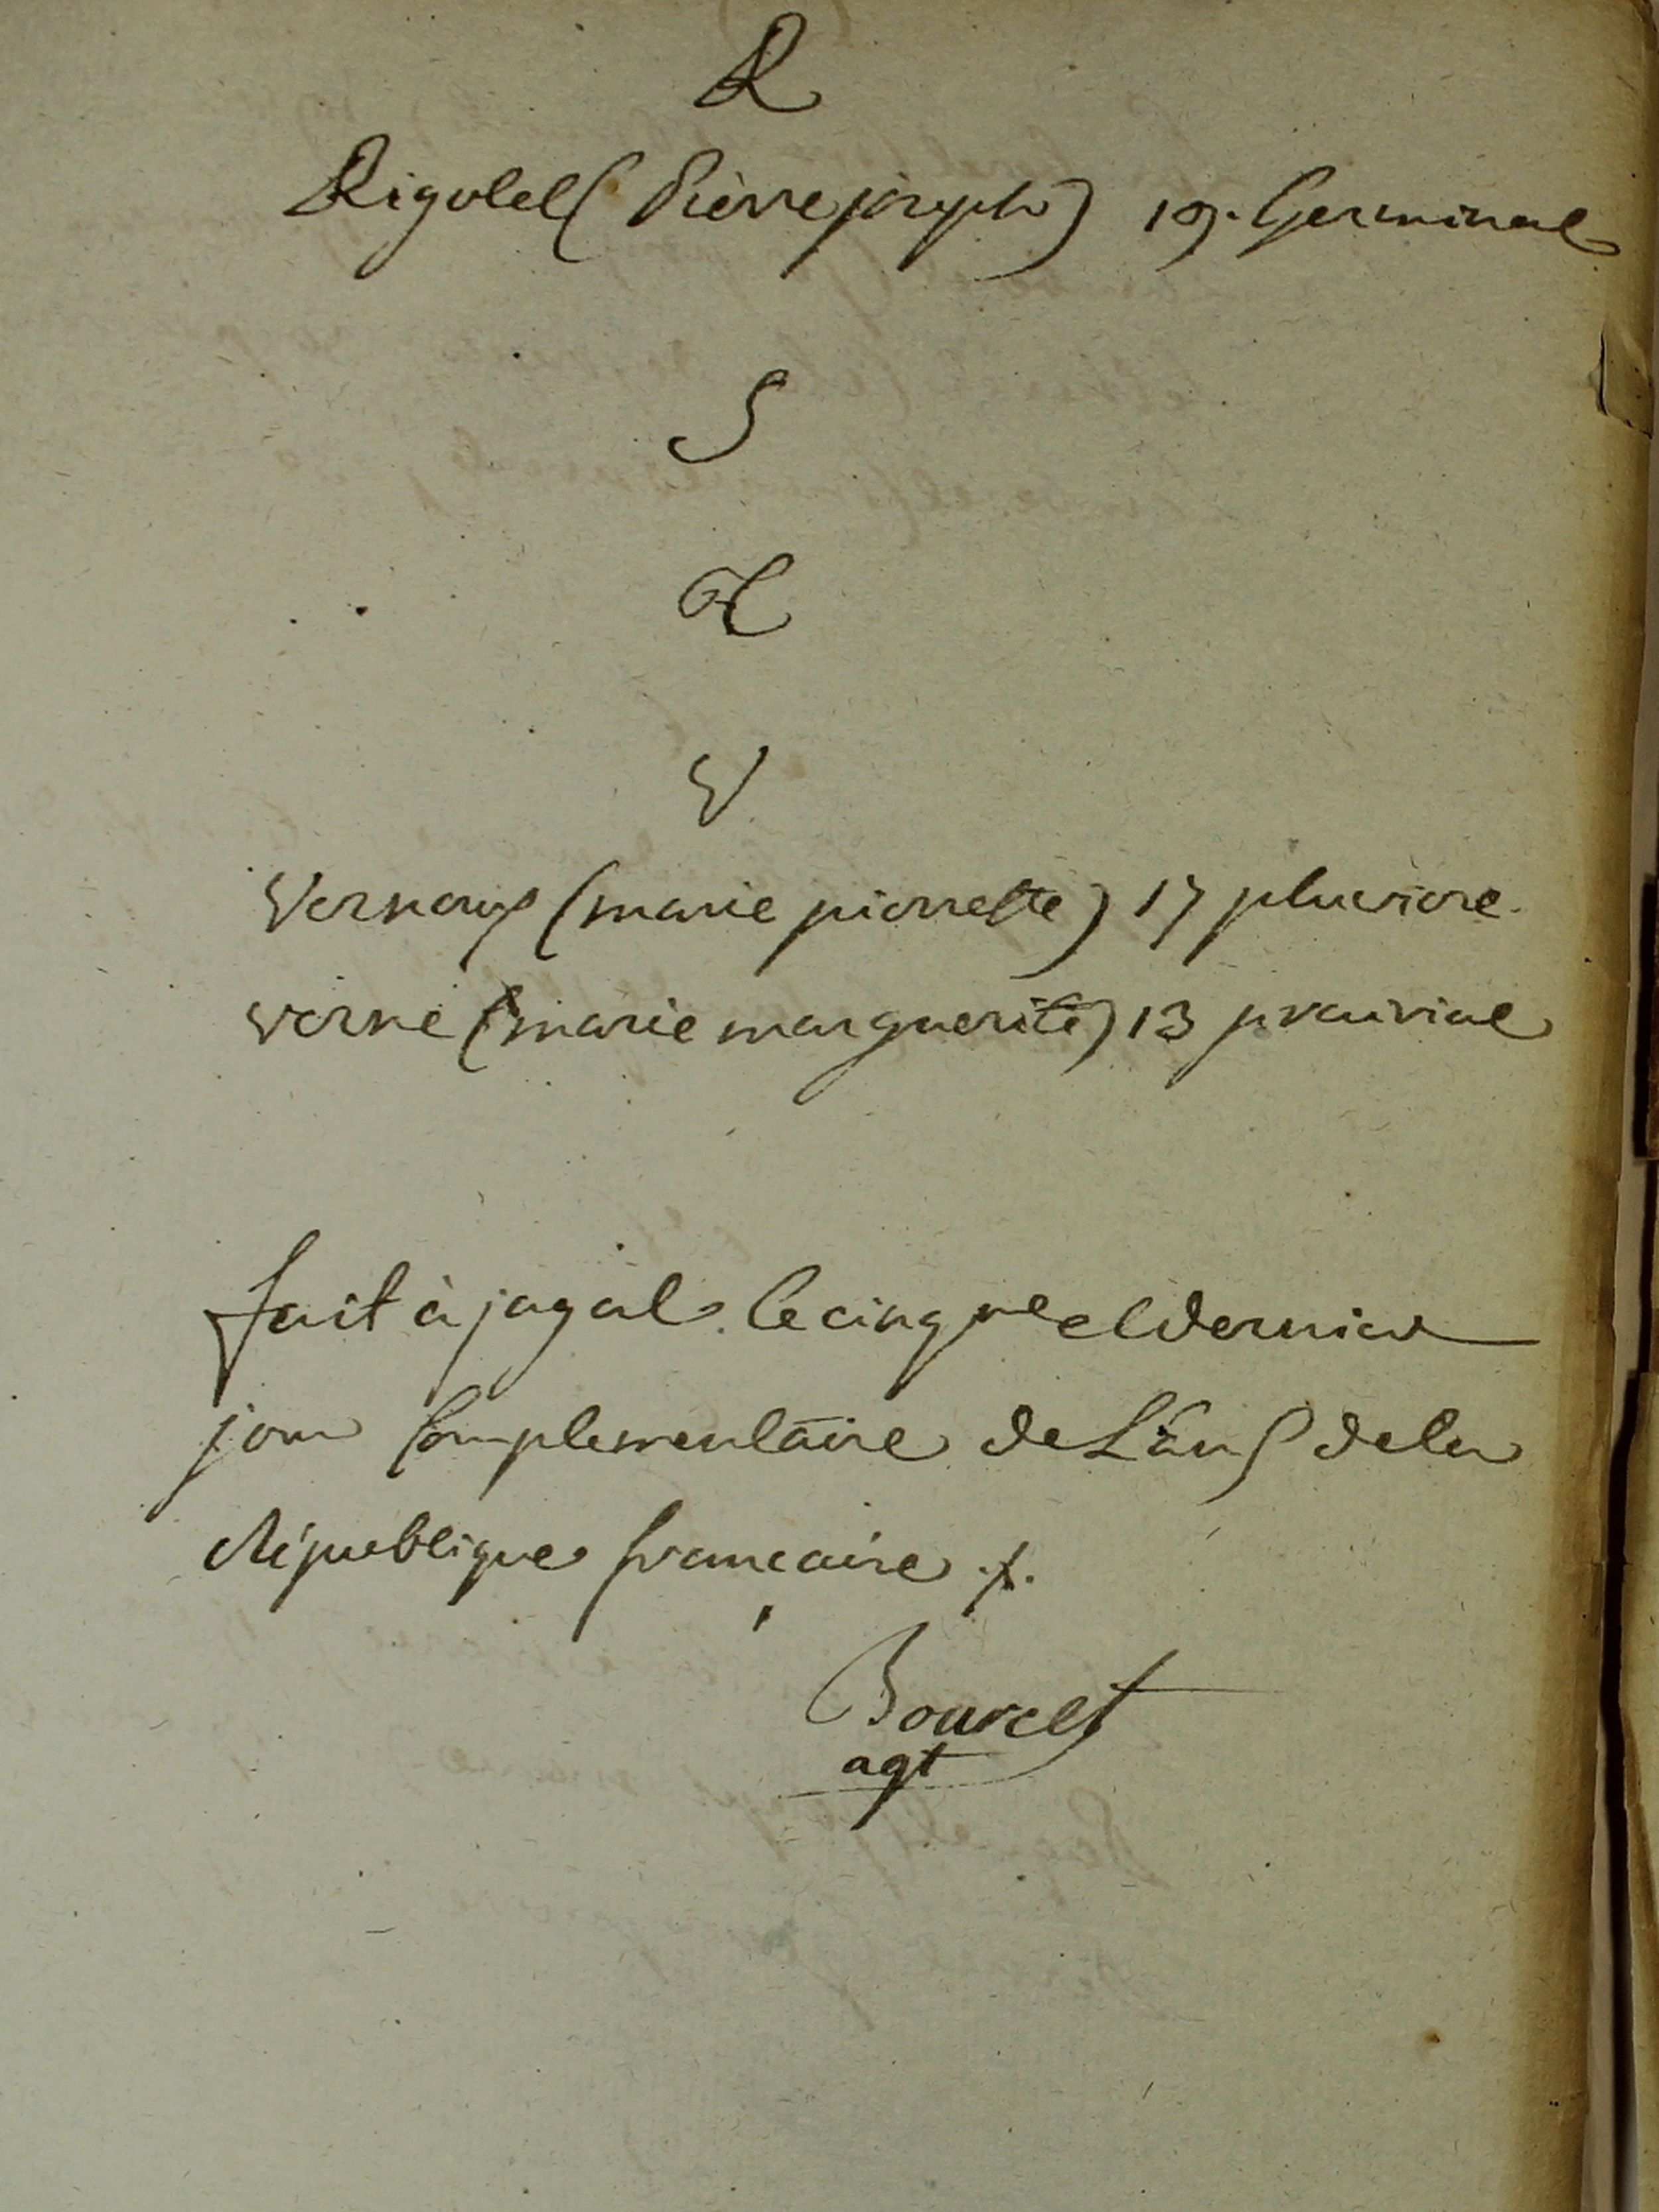 R
Rigolet (Pierre joseph) 19. Germinal
S
T
V
Vernoux (marie pierrette) 17 pluviose.
verne (marie marguerite) 13 prairial
fait à jugal. le cinq me et dernier
jour Complementaire de L'an 5 de la
République francaise ./.
Bourcet
agt